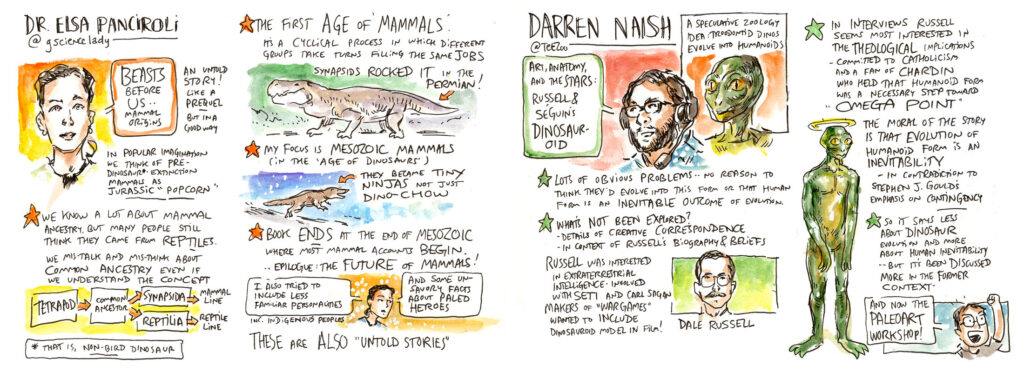 DR. ELSA PANCIROLI
@gsciencelady
BEASTS
BEFORE
US..
MAMMAL
ORIGINS
AN UNTOLD
STORY!
LIKE A
PREQUEL
BUT IN A
GOOD WAY
IN POPULAR IMAGINATION
WE THINK OF PRE-
DINOSAUR* EXTINCTION
MAMMALS AS
JURASSIC "POPCORN"
WE KNOW A LOT ABOUT MAMMAL
ANCESTRY, BUT MANY PEOPLE STILL
THINK THEY CAME FROM REPTILES.
WE MIS-TALK AND MIS-THINK ABOUT
COMMON ANCESTRY EVEN IF
WE UNDERSTAND THE CONCEPT
TETRAPOD
COMMON
ANCESTOR
SYNAPSIDA
MAMMAL
LINE
REPTILIA
REPTILE
LINE
* THAT IS, NON-BIRD DINOSAUR
THE FIRST AGE OF MAMMALS:
IT'S A CYCLICAL PROCESS IN WHICH DIFFERENT
GROUPS TAKE TURNS FILLING THE SAME JOBS
SYNAPSIDS ROCKED IT IN THE
PERMIAN!
MY FOCUS IS MESOZOIC MAMMALS
(IN THE 'AGE OF DINOSAURS')
THEY BECAME TINY
NINJAS NOT JUST
DINO-CHOW
BOOK ENDS AT THE END OF MESOZOIC
WHERE MOST MAMMAL ACCOUNTS BEGIN..
..EPILOGUE: THE FUTURE OF MAMMALS!
I ALSO TRIED TO
INCLUDE LESS
FAMILIAR PERSONALITIES
INC. INDIGENOUS PEOPLES
AND SOME UN-
SAVORY FACTS
ABOUT PALEO
HEROES
THESE ARE ALSO "UNTOLD STORIES"
DARREN NAISH
@TETZOO
A SPECULATIVE ZOOLOGY
IDEA: TROODONTID DINOS
EVOLVE INTO HUMANOIDS
ART, ANATOMY,
AND THE STARS:
RUSSELL &
SÉGUIN'S
DINOSAUR-
OID
LOTS OF OBVIOUS PROBLEMS.. NO REASON TO
THINK THEY'D EVOLVE INTO THIS FORM OR THAT HUMAN
FORM IS AN INEVITABLE OUTCOME OF EVOLUTION.
WHAT'S NOT BEEN EXPLORED?
- DETAILS OF CREATIVE CORRESPONDENCE
- IN CONTEXT OF RUSSELL'S BIOGRAPHY & BELIEFS
RUSSELL WAS INTERESTED
IN EXTRATERRESTRIAL
INTELLIGENCE - INVOLVED
WITH SETI AND CARL SAGAN
MAKERS OF "WAR GAMES"
WANTED TO INCLUDE
DINOSAUROID MODEL IN FILM!
DALE RUSSELL
IN INTERVIEWS RUSSELL
SEEMS MOST INTERESTED IN
THE THEOLOGICAL IMPLICATIONS
- COMMITTED TO CATHOLICISM
AND A FAN OF CHARDIN
WHO HELD THAT HUMANOID FORM
WAS A NECESSARY STEP TOWARD
"OMEGA POINT"
THE MORAL OF THE STORY
IS THAT EVOLUTION OF
HUMANOID FORM IS AN
INEVITABILITY
- IN CONTRADICTION TO
STEPHEN J. GOULD'S
EMPHASIS ON CONTINGENCY
SO IT SAYS LESS
ABOUT DINOSAUR
EVOLUTION AND MORE
ABOUT HUMAN INEVITABILITY
..BUT IT'S BEEN DISCUSSED
MORE IN THE FORMER
CONTEXT.
AND NOW THE
PALEOART
WORKSHOP!